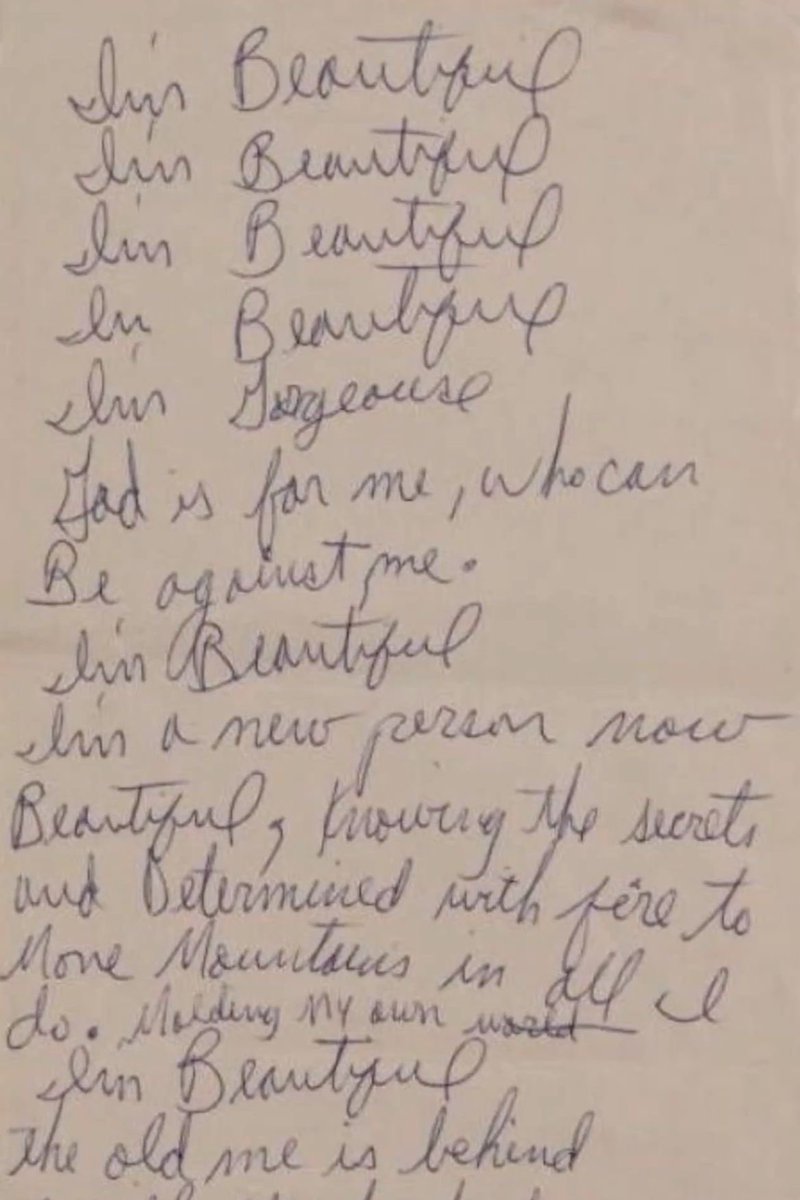 I'm Beautiful
I'm Beautiful
I'm Beautiful
I'm Beautiful
I'm Gorgeouse
God is for me, who can
Be against me.
I'm Beautiful
I'm a new person now
Beautiful, Knowing the secrets
and Determined with fire to
Move Mountains in all I
do. Molding My own world
I'm Beautiful
The old me is behind